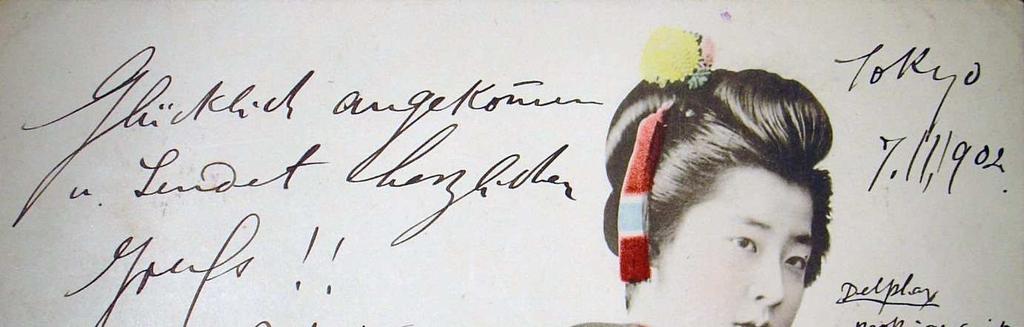 Glücklich angekom̄en
u. sendet herzlichen
Gruß !!
Tokyo
7.11.1902.
Delplax